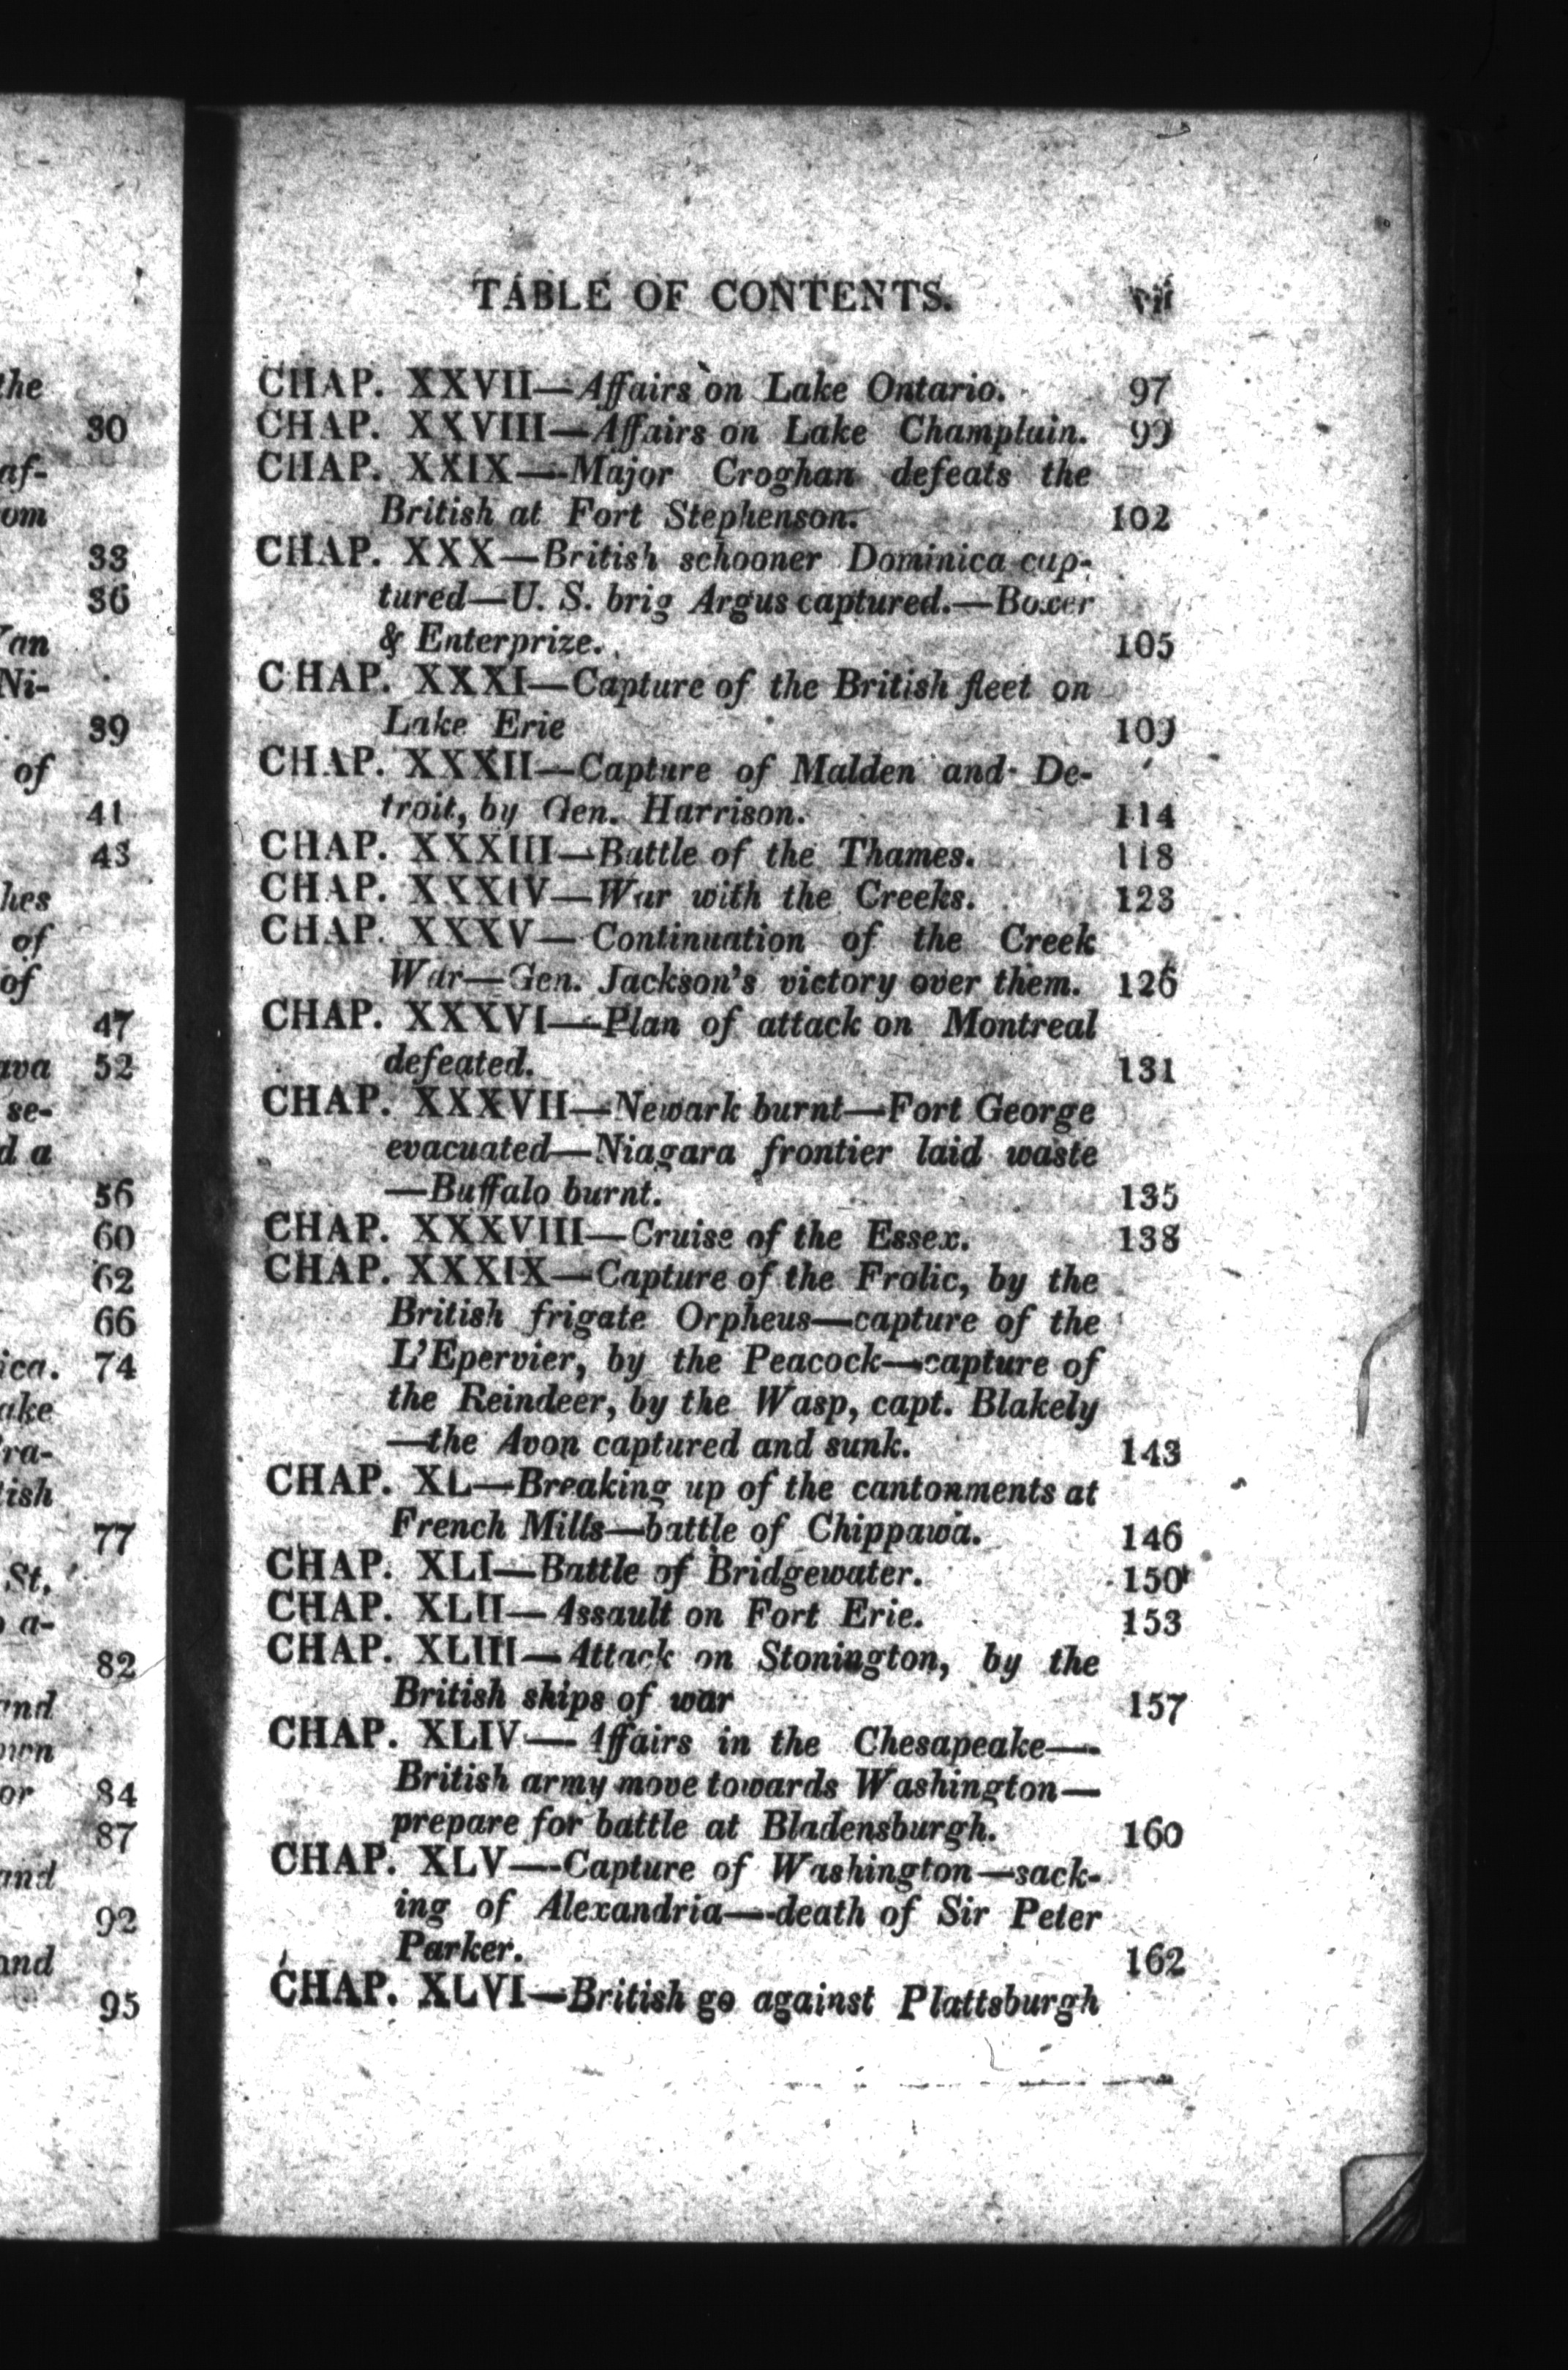 the
30
af-
om
33
36
an
Ni-
39
of
41
43
hes
of
of
47
ava 52
se-
d a
56
60
62
66
ica. 74
ake
ra-
tish
77
St.
a-
82
and
own
or 84
87
and
92
and
95
TABLE OF CONTENTS. vii
CHAP. XXVII—Affairs on Lake Ontario. 97
CHAP. XXVIII—Affairs on Lake Champlain. 99
CHAP. XXIX—Major Croghan defeats the
British at Fort Stephenson. 102
CHAP. XXX—British schooner Dominica cap-
tured—U. S. brig Argus captured.—Boxer
& Enterprize. 105
CHAP. XXXI—Capture of the British fleet on
Lake Erie 109
CHAP. XXXII—Capture of Malden and De-
troit, by Gen. Harrison. 114
CHAP. XXXIII—Battle of the Thames. 118
CHAP. XXXIV—War with the Creeks. 123
CHAP. XXXV—Continuation of the Creek
War—Gen. Jackson's victory over them. 126
CHAP. XXXVI—Plan of attack on Montreal
defeated. 131
CHAP. XXXVII—Newark burnt—Fort George
evacuated—Niagara frontier laid waste
—Buffalo burnt. 135
CHAP. XXXVIII—Cruise of the Essex. 138
CHAP. XXXIX—Capture of the Frolic, by the
British frigate Orpheus—capture of the
L'Epervier, by the Peacock—capture of
the Reindeer, by the Wasp, capt. Blakely
—the Avon captured and sunk. 143
CHAP. XL—Breaking up of the cantonments at
French Mills—battle of Chippawa. 146
CHAP. XLI—Battle of Bridgewater. 150
CHAP. XLII—Assault on Fort Erie. 153
CHAP. XLIII—Attack on Stonington, by the
British ships of war 157
CHAP. XLIV—Affairs in the Chesapeake—
British army move towards Washington—
prepare for battle at Bladensburgh. 160
CHAP. XLV—Capture of Washington—sack-
ing of Alexandria—death of Sir Peter
Parker. 162
CHAP. XLVI—British go against Plattsburgh